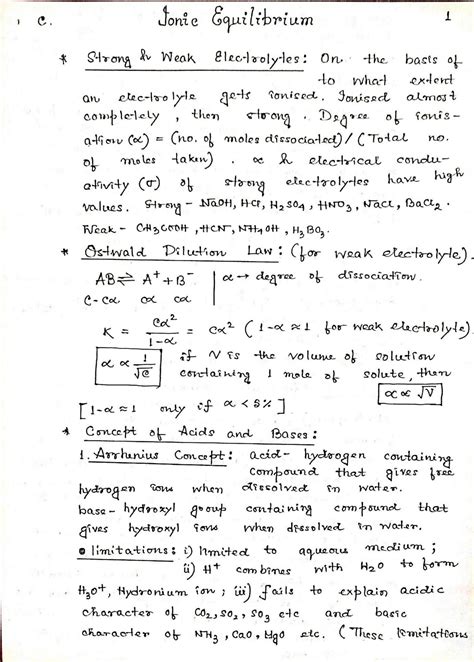 C. Ionic Equilibrium 1
* Strong & Weak Electrolytes: On the basis of
to what extent
an electrolyte gets ionised. Ionised almost
completely, then strong. Degree of ionis-
ation (α) = (no. of moles dissociated)/(Total no.
of moles taken). α & electrical condu-
ativity (σ) of strong electrolytes have high
values. Strong - NaOH, HCl, H₂SO₄, HNO₃, NaCl, BaCl₂.
Weak - CH₃COOH, HCN, NH₄OH, H₃BO₃.
* Ostwald Dilution Law: (for weak electrolyte).
AB ⇌ A⁺ + B⁻ | α → degree of dissociation.
C-Cα Cα Cα
K = Cα²/(1-α) = Cα² (1-α ≈ 1 for weak electrolyte).
α ∝ 1/√C if V is the volume of solution
containing 1 mole of solute, then
α ∝ √V
[1-α ≈ 1 only if α < 5%]
* Concept of Acids and Bases:
1. Arrhenius Concept: acid- hydrogen containing
compound that gives free
hydrogen ions when dissolved in water.
base- hydroxyl group containing compound that
gives hydroxyl ions when dissolved in water.
• limitations: i) limited to aqueous medium;
ii) H⁺ combines with H₂O to form
H₃O⁺, Hydronium ion; iii) fails to explain acidic
character of CO₂, SO₂, SO₃ etc and basic
character of NH₃, CaO, MgO etc. (These limitations